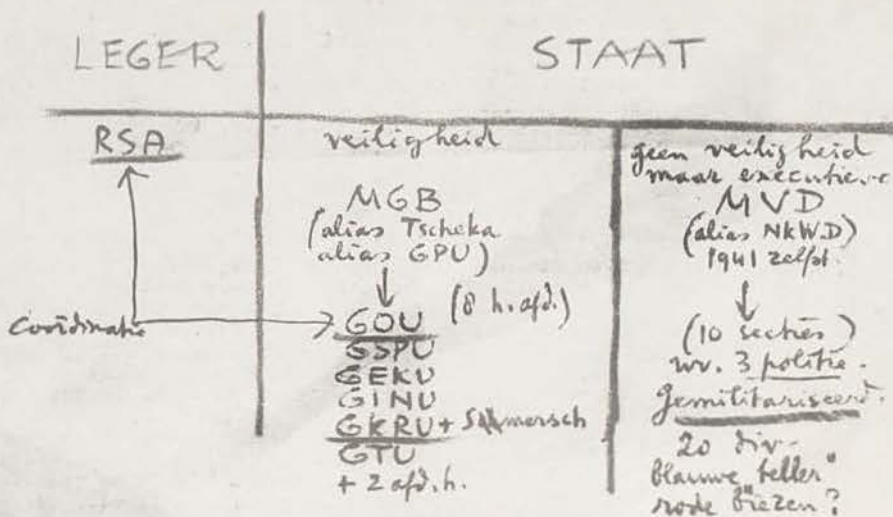 LEGER
STAAT
RSA
Coördinatie
veiligheid
MGB
(alias Tscheka
alias GPU)
(8 h. afd.)
GOU
GSPU
GEKU
GINU
GKRU + Smersch
GTU
+ 2 afd. h.
geen veiligheid
maar executieve
MVD
(alias NKWD)
1941 zelfst.
(10 secties)
wv. 3 politie.
Gemilitariseerd.
20 div.
blauwe
rode biezen?